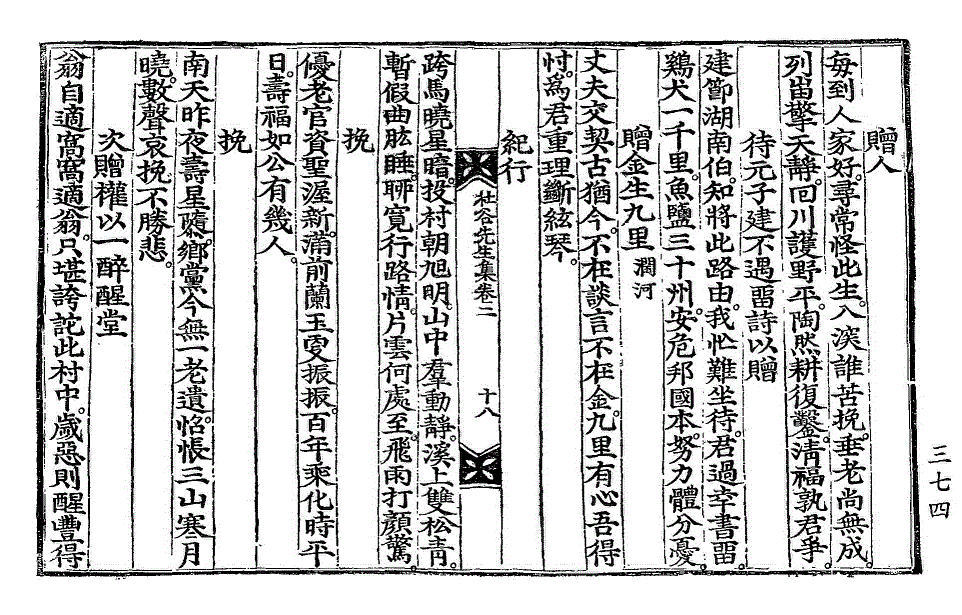 贈人
每到人家好。尋常怪此生。入深誰苦挽。垂老尚無成
列岫擎天靜。回川護野平。陶然耕復鑿。淸福孰君爭。
待元子建不遇畱詩以贈
建節湖南伯。知將此路由。我忙難坐待。君過幸書畱。
鷄犬一千里。魚鹽三十州。安危邦國本。努力體分憂。
贈金生九里 澗河
丈夫交契古猶今。不在談言不在金。九里有心吾得
忖。爲君重理斷絃琴。
紀行
杜谷先生集卷二 十八
跨馬曉星暗。投村朝旭明。山中羣動靜。溪上雙松靑。
暫假曲肱睡。聊寬行路情。片雲何處至。飛雨打顏驚。
挽
優老官資聖渥新。滿前蘭玉更振振。百年乘化時平
日。壽福如公有幾人。
挽
南天昨夜壽星隳。鄕黨今無一老遺。怊悵三山寒月
曉。數聲哀挽不勝悲。
次贈權以一醉醒堂
翁自適窩窩適翁。只堪誇詫此村中。歲惡則醒豐得
三七四